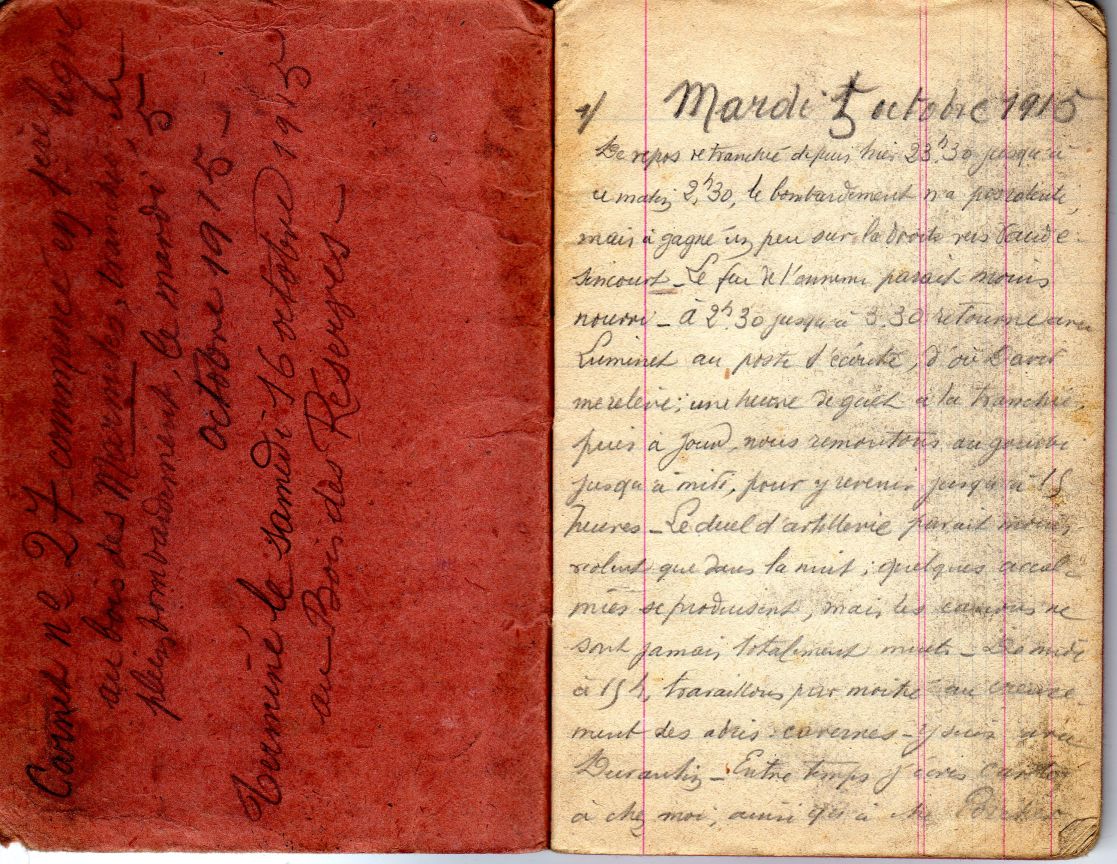 Carnet nº 27 commencé en 1ère ligne
au bois des Marmites, tranchée de
plein bombardement, le mardi 5
octobre 1915 —
Terminé le samedi 16 octobre 1915
au Bois des Réserves —
1/ Mardi 5 octobre 1915
De repos retranché depuis hier 23h30 jusqu'à
ce matin 2h,30, le bombardement n'a pas ralenti,
mais à gagné un peu sur la droite vers Baude-
sincourt — Le feu de l'ennemi parait moins
nourri — à 2h.30 jusqu'à 3.30 retourne avec
Luminet au poste d'écoute, d'où
me relève; une heure de guet à la tranchée,
puis à jour, nous remontons au gourbi
jusqu'à midi, pour y revenir jusqu'à 15
heures — Le duel d'artillerie parait moins
violent que dans la nuit; quelques accal-
mies se produisent, mais les canons ne
sont jamais totalement muets — De midi
à 15h, travaillons par moitié au creuse-
ment des abris-cavernes — y suis avec
Durantin — Entre temps j'écris cartes
à chez moi, ainsi qu'à